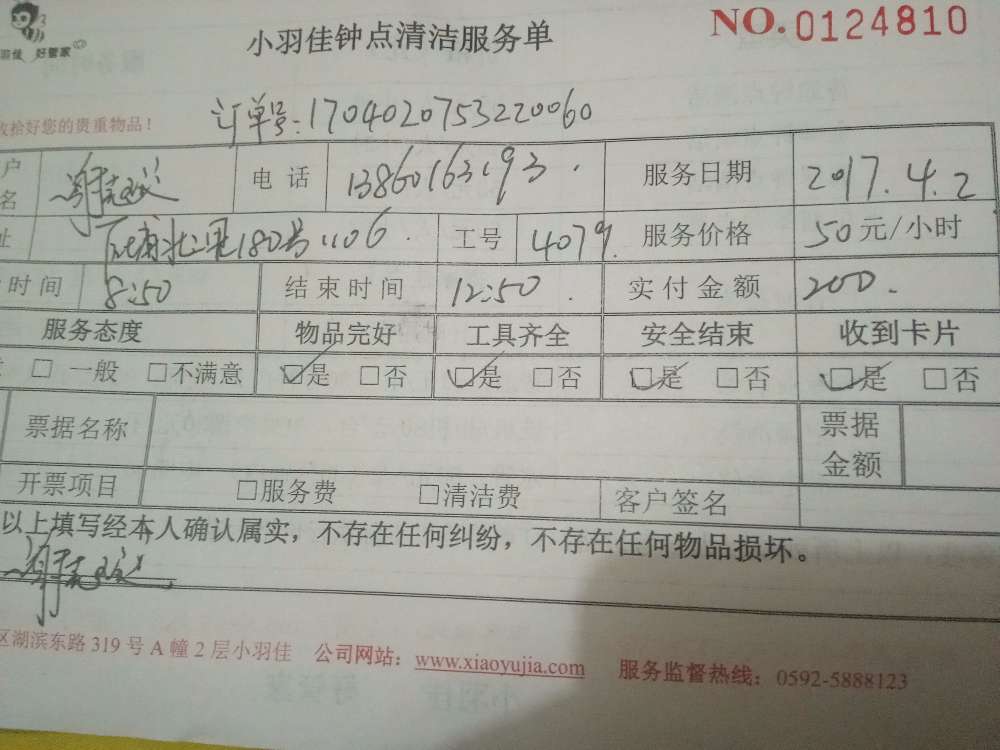 羽佳 好管家
小羽佳钟点清洁服务单
NO. 0124810
收拾好您的贵重物品!
订单号:1704020753220060
户名 电话 13860163193 服务日期 2017.4.2
址 北里180号1106 工号 4079 服务价格 50元/小时
时间 8:50 结束时间 12:50 实付金额 200
服务态度 物品完好 工具齐全 安全结束 收到卡片
□ 一般 □不满意 ☑是 □否 ☑是 □否 ☑是 □否 ☑是 □否
票据名称 票据金额
开票项目 □服务费 □清洁费 客户签名
以上填写经本人确认属实,不存在任何纠纷,不存在任何物品损坏。
区湖滨东路 319 号 A 幢 2 层小羽佳 公司网站:www.xiaoyujia.com 服务监督热线:0592-5888123